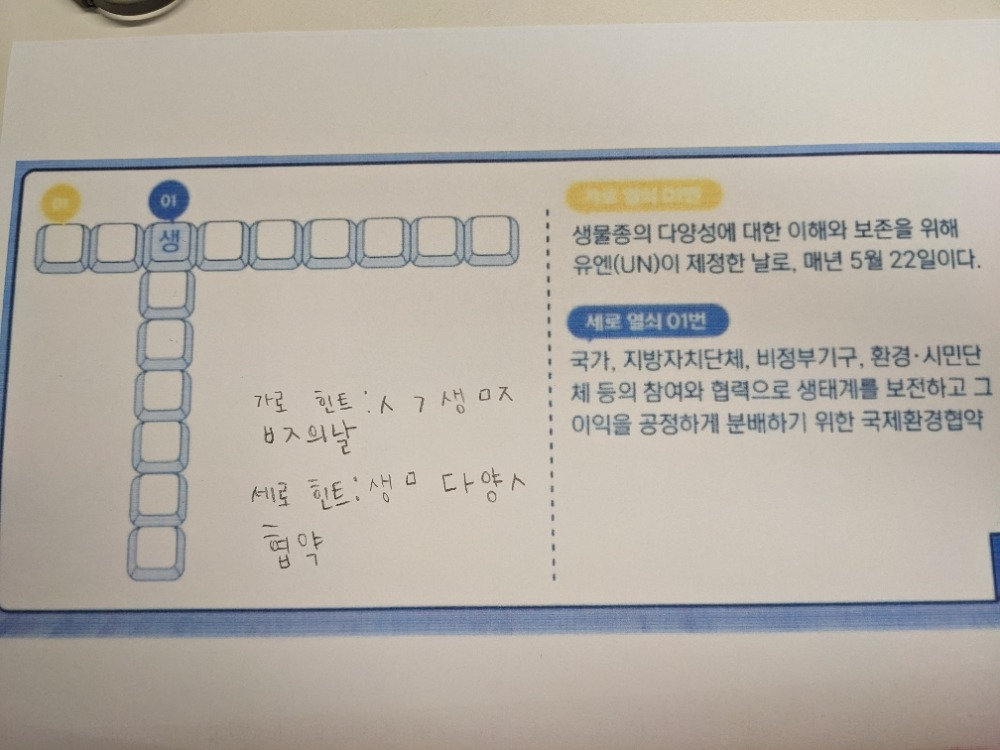 01
생
가로 힌트: ㅅ ㄱ 생 ㅁㅈ
ㅂㅈ의날
세로 힌트: 생 ㅁ 다양ㅅ
협약
가로 열쇠 01번
생물종의 다양성에 대한 이해와 보존을 위해
유엔(UN)이 제정한 날로, 매년 5월 22일이다.
세로 열쇠 01번
국가, 지방자치단체, 비정부기구, 환경·시민단
체 등의 참여와 협력으로 생태계를 보전하고 그
이익을 공정하게 분배하기 위한 국제환경협약